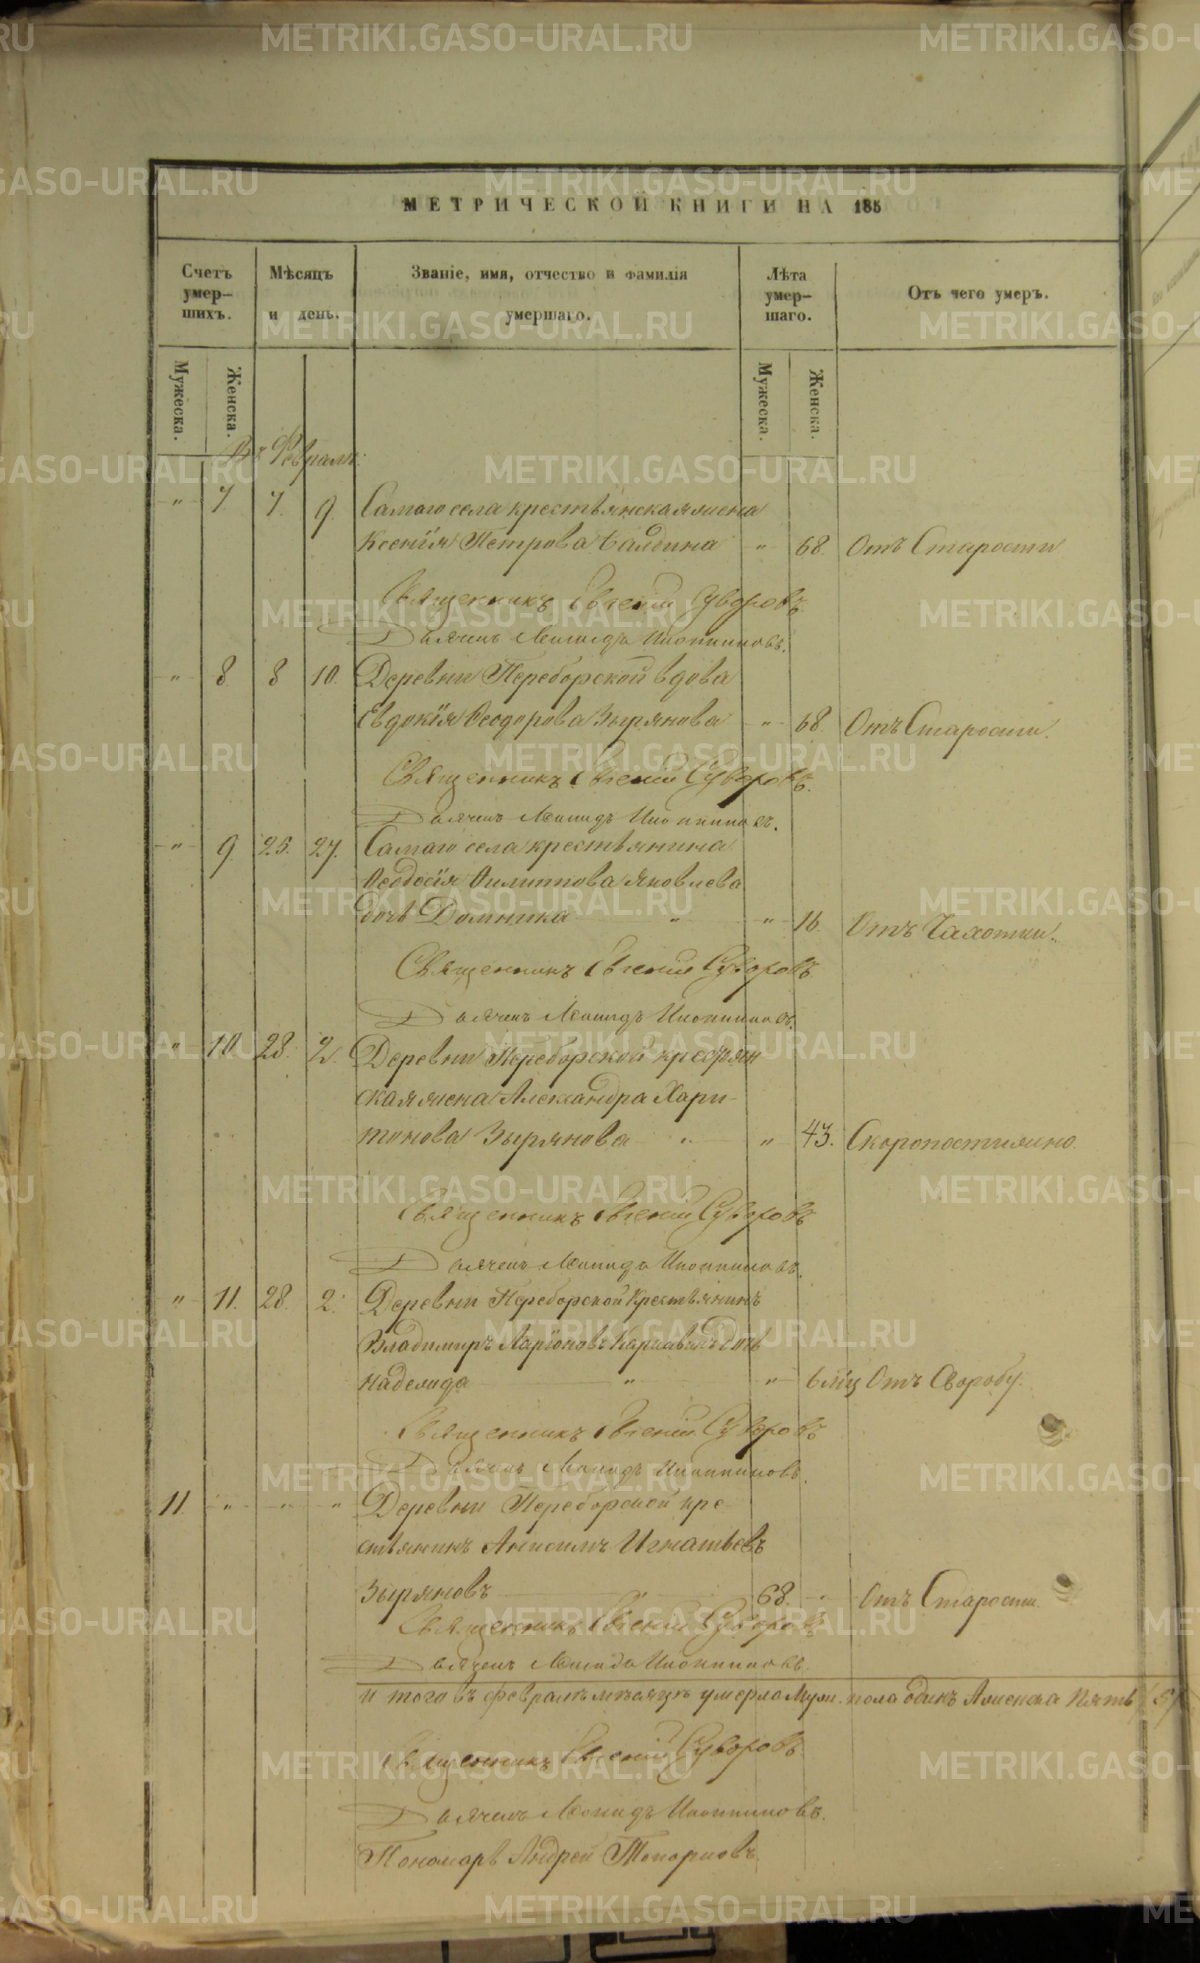 МЕТРИЧЕСКОЙ КНИГИ НА 185
Счетъ умер-шихъ.
Мѣсяцъ и день.
Званіе, имя, отчество и фамилія умершаго.
Лѣта умер-шаго.
Отъ чего умеръ.
Мужеска. Женска. Мужеска. Женска.
Въ Февралѣ.
" 7. 7. 9. Самаго села крестьянская жена
Ксенія Петрова " 68. Отъ Старости
Священникъ Евгеній Суворовъ
Дьячекъ Леонидъ
" 8 8 10. Деревни Переборской вдова
Евдокія Ѳеодорова Зырянова " 68. Отъ Старости.
Священникъ Евгеній Суворовъ.
Дьячекъ Леонидъ
" 9 25. 27. Самаго села крестьянина
Ѳеодосія Филиппова Яковлева
дочь Домника " " 16. Отъ Чахотки.
Священникъ Евгеній Суворовъ
Дьячекъ Леонидъ
" 10. 28. 2. Деревни Переборской крестьян
ская жена Александра Хари-
тонова Зырянова " " 43. Скоропостижно.
Священникъ Евгеній Суворовъ
Дьячекъ Леонидъ
" 11. 28. 2. Деревни Переборской Крестьянинъ
Владимиръ Ларіоновъ дочь
Надежда " " 6 мѣц Отъ
Священникъ Евгеній Суворовъ
Дьячекъ Леонидъ
11. " " " Деревни Переборской кре-
стьянинъ Анисимъ Игнатьевъ
Зыряновъ 68. " Отъ Старости.
Священникъ Евгеній Суворовъ
Дьячекъ Леонидъ
Итого въ февралѣ мѣсяцѣ умерло Муж. пола одинъ а женска пять (5)
Священникъ Евгеній Суворовъ
Дьячекъ Леонидъ
Пономарь Андрей Топорковъ
METRIKI.GASO-URAL.RU